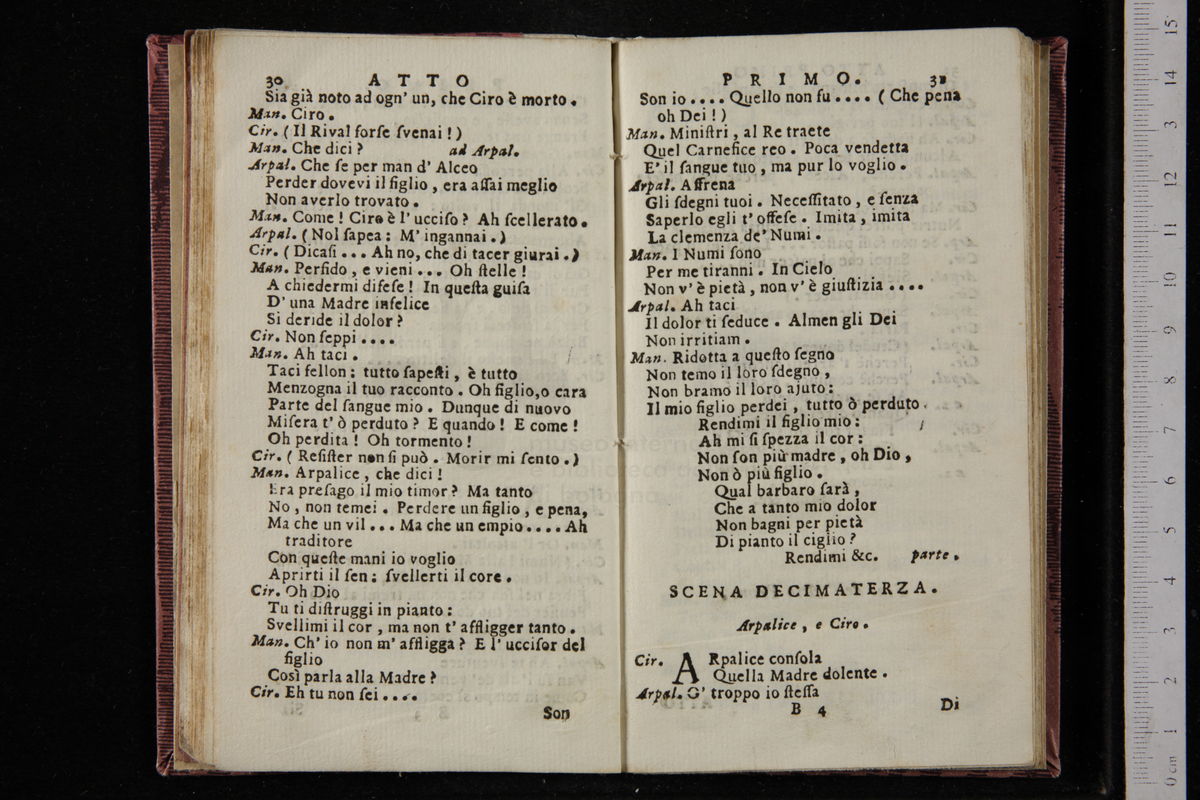 30 ATTO
Sia già noto ad ogn' un, che Ciro è morto.
Man. Ciro.
Cir. ( Il Rival forſe ſvenai ! )
Man. Che dici ? ad Arpal.
Arpal. Che ſe per man d' Alceo
Perder dovevi il figlio , era aſſai meglio
Non averlo trovato .
Man. Come ! Ciro è l' ucciſo ? Ah ſcellerato.
Arpal. ( Nol ſapea : M' ingannai . )
Cir. ( Dicaſi ... Ah no, che di tacer giurai . )
Man. Perfido , e vieni ... Oh ſtelle !
A chiedermi difeſe ! In queſta guiſa
D' una Madre infelice
Si deride il dolor ?
Cir. Non ſeppi ....
Man. Ah taci .
Taci fellon ; tutto ſapeſti , è tutto
Menzogna il tuo racconto . Oh figlio,o cara
Parte del ſangue mio . Dunque di nuovo
Miſera t' ò perduto ? E quando ! E come !
Oh perdita ! Oh tormento !
Cir. ( Reſiſter non ſi può . Morir mi ſento . )
Man. Arpalice , che dici !
Era preſago il mio timor ? Ma tanto
No , non temei . Perdere un figlio , e pena,
Ma che un vil ... Ma che un empio .... Ah
traditore
Con queſte mani io voglio
Aprirti il ſen ; ſvellerti il core .
Cir. Oh Dio
Tu ti diſtruggi in pianto :
Svellimi il cor , ma non t' affligger tanto .
Man. Ch' io non m' affligga ? E l' ucciſor del
figlio
Così parla alla Madre ?
Cir. Eh tu non ſei ....
Son
PRIMO. 31
Son io .... Quello non fu .... ( Che pena
oh Dei ! )
Man. Miniſtri , al Re traete
Quel Carnefice reo . Poca vendetta
E' il ſangue tuo , ma pur lo voglio .
Arpal. Affrena
Gli ſdegni tuoi . Neceſſitato , e ſenza
Saperlo egli t' offeſe . Imita , imita
La clemenza de' Numi .
Man. I Numi ſono
Per me tiranni . In Cielo
Non v' è pietà , non v' è giuſtizia ....
Arpal. Ah taci
Il dolor ti ſeduce . Almen gli Dei
Non irritiam .
Man. Ridotta a queſto ſegno
Non temo il loro ſdegno ,
Non bramo il loro ajuto :
Il mio figlio perdei , tutto ò perduto .
Rendimi il figlio mio :
Ah mi ſi ſpezza il cor :
Non ſon più madre , oh Dio ,
Non ò più figlio .
Qual barbaro ſarà ,
Che a tanto mio dolor
Non bagni per pietà
Di pianto il ciglio ?
Rendimi &c. parte .
SCENA DECIMATERZA.
Arpalice , e Ciro .
Cir. ARpalice conſola
Quella Madre dolente .
Arpal. O' troppo io ſteſſa
B 4 Di